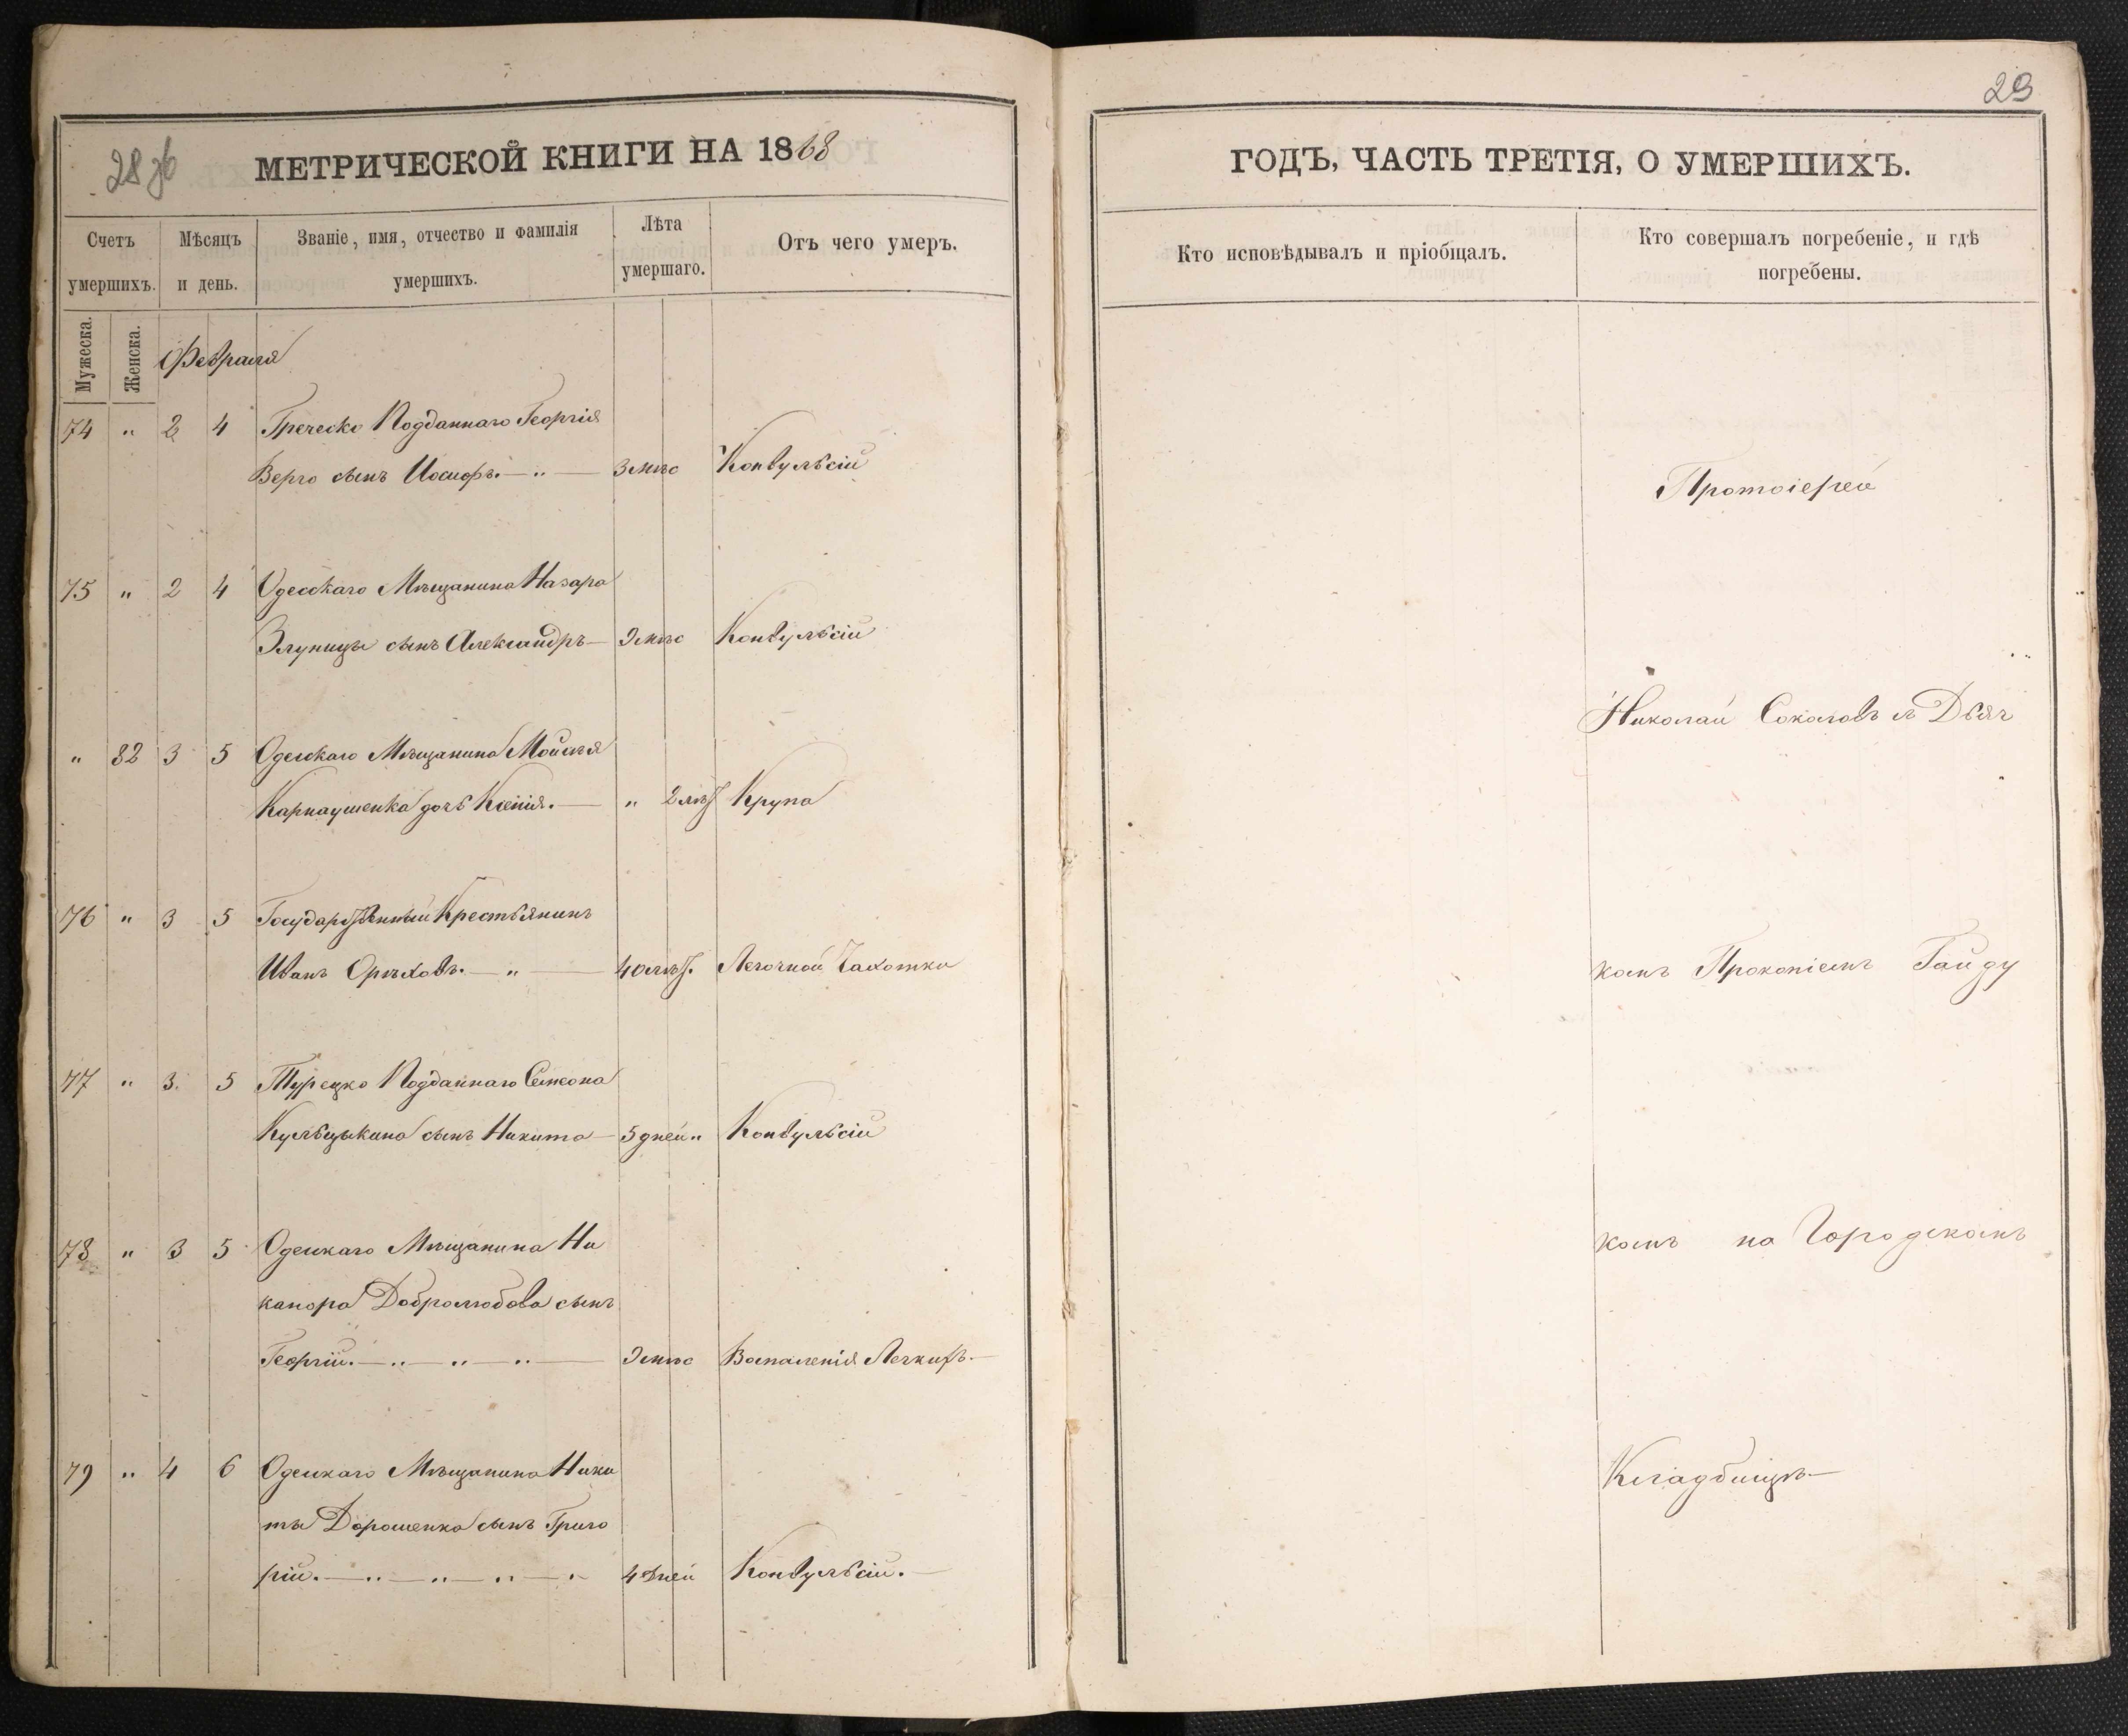 28 об
МЕТРИЧЕСКОЙ КНИГИ НА 1868
Счетъ умершихъ.
Мѣсяцъ и день.
Званіе, имя, отчество и фамилія умершихъ.
Лѣта умершаго.
Отъ чего умеръ.
Мужеска.
Женска.
Февраля
74 " 2 4 Греческо Подданнаго Георгія
Верго сынъ Иосифъ. — " — 3 мѣс Конвульсій
75 " 2 4 Одесскаго Мѣщанина Назара
сынъ Александръ — мѣс Конвульсій
" 82 3 5 Одесскаго Мѣщанина Мойсея
Карпаушенка дочь Ксенія. — " 2 лѣт Крупа
76 " 3 5 Государственный Крестьянинъ
Иванъ Орѣховъ. — " — 40 лѣт. Легочной Чахотки
77 " 3. 5 Турецко Подданнаго Симеона
сынъ Никита — 5 дней " Конвульсій
78 " 3 5 Одесскаго Мѣщанина Ни
канора Добролюбова сынъ
Георгій. — " — " — " — мѣс Воспаленія Легкихъ. —
79 " 4 6 Одесскаго Мѣщанина Ники
ты Дорошенко сынъ Григо
рій. — " — " — " — " 4 дней Конвульсій. —
29
ГОДЪ, ЧАСТЬ ТРЕТІЯ, О УМЕРШИХЪ.
Кто исповѣдывалъ и пріобщалъ.
Кто совершалъ погребеніе, и гдѣ погребены.
Протоіерей
Николай Соколовъ съ Дьяч
комъ Прокопіемъ Гайду
комъ на Городскомъ
Кладбищѣ —